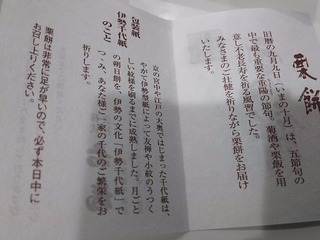 栗餅
旧暦の九月九日(いまの十月)は、五節句の
中で最も重要な重陽の節句。菊酒や栗飯を用
意し不老長寿を祈る風習でした。
みなさまのご壮健を祈りながら栗餅をお届け
いたします。
包装紙
伊勢千代紙
のこと
京の宮中や江戸の大奥ではじまった千代紙は、
やがて伊勢型紙によって友禅や小紋のうつく
しい紋様を刷るまでに成熟しました。月ごと
の朔日餅を、伊勢の文化「伊勢千代紙」で
つゝみ、あなた様ご一家の千代のご繁栄をお
祈りします。
栗餅は非常に足が早いので、必ず本日中に
お召し上りください。